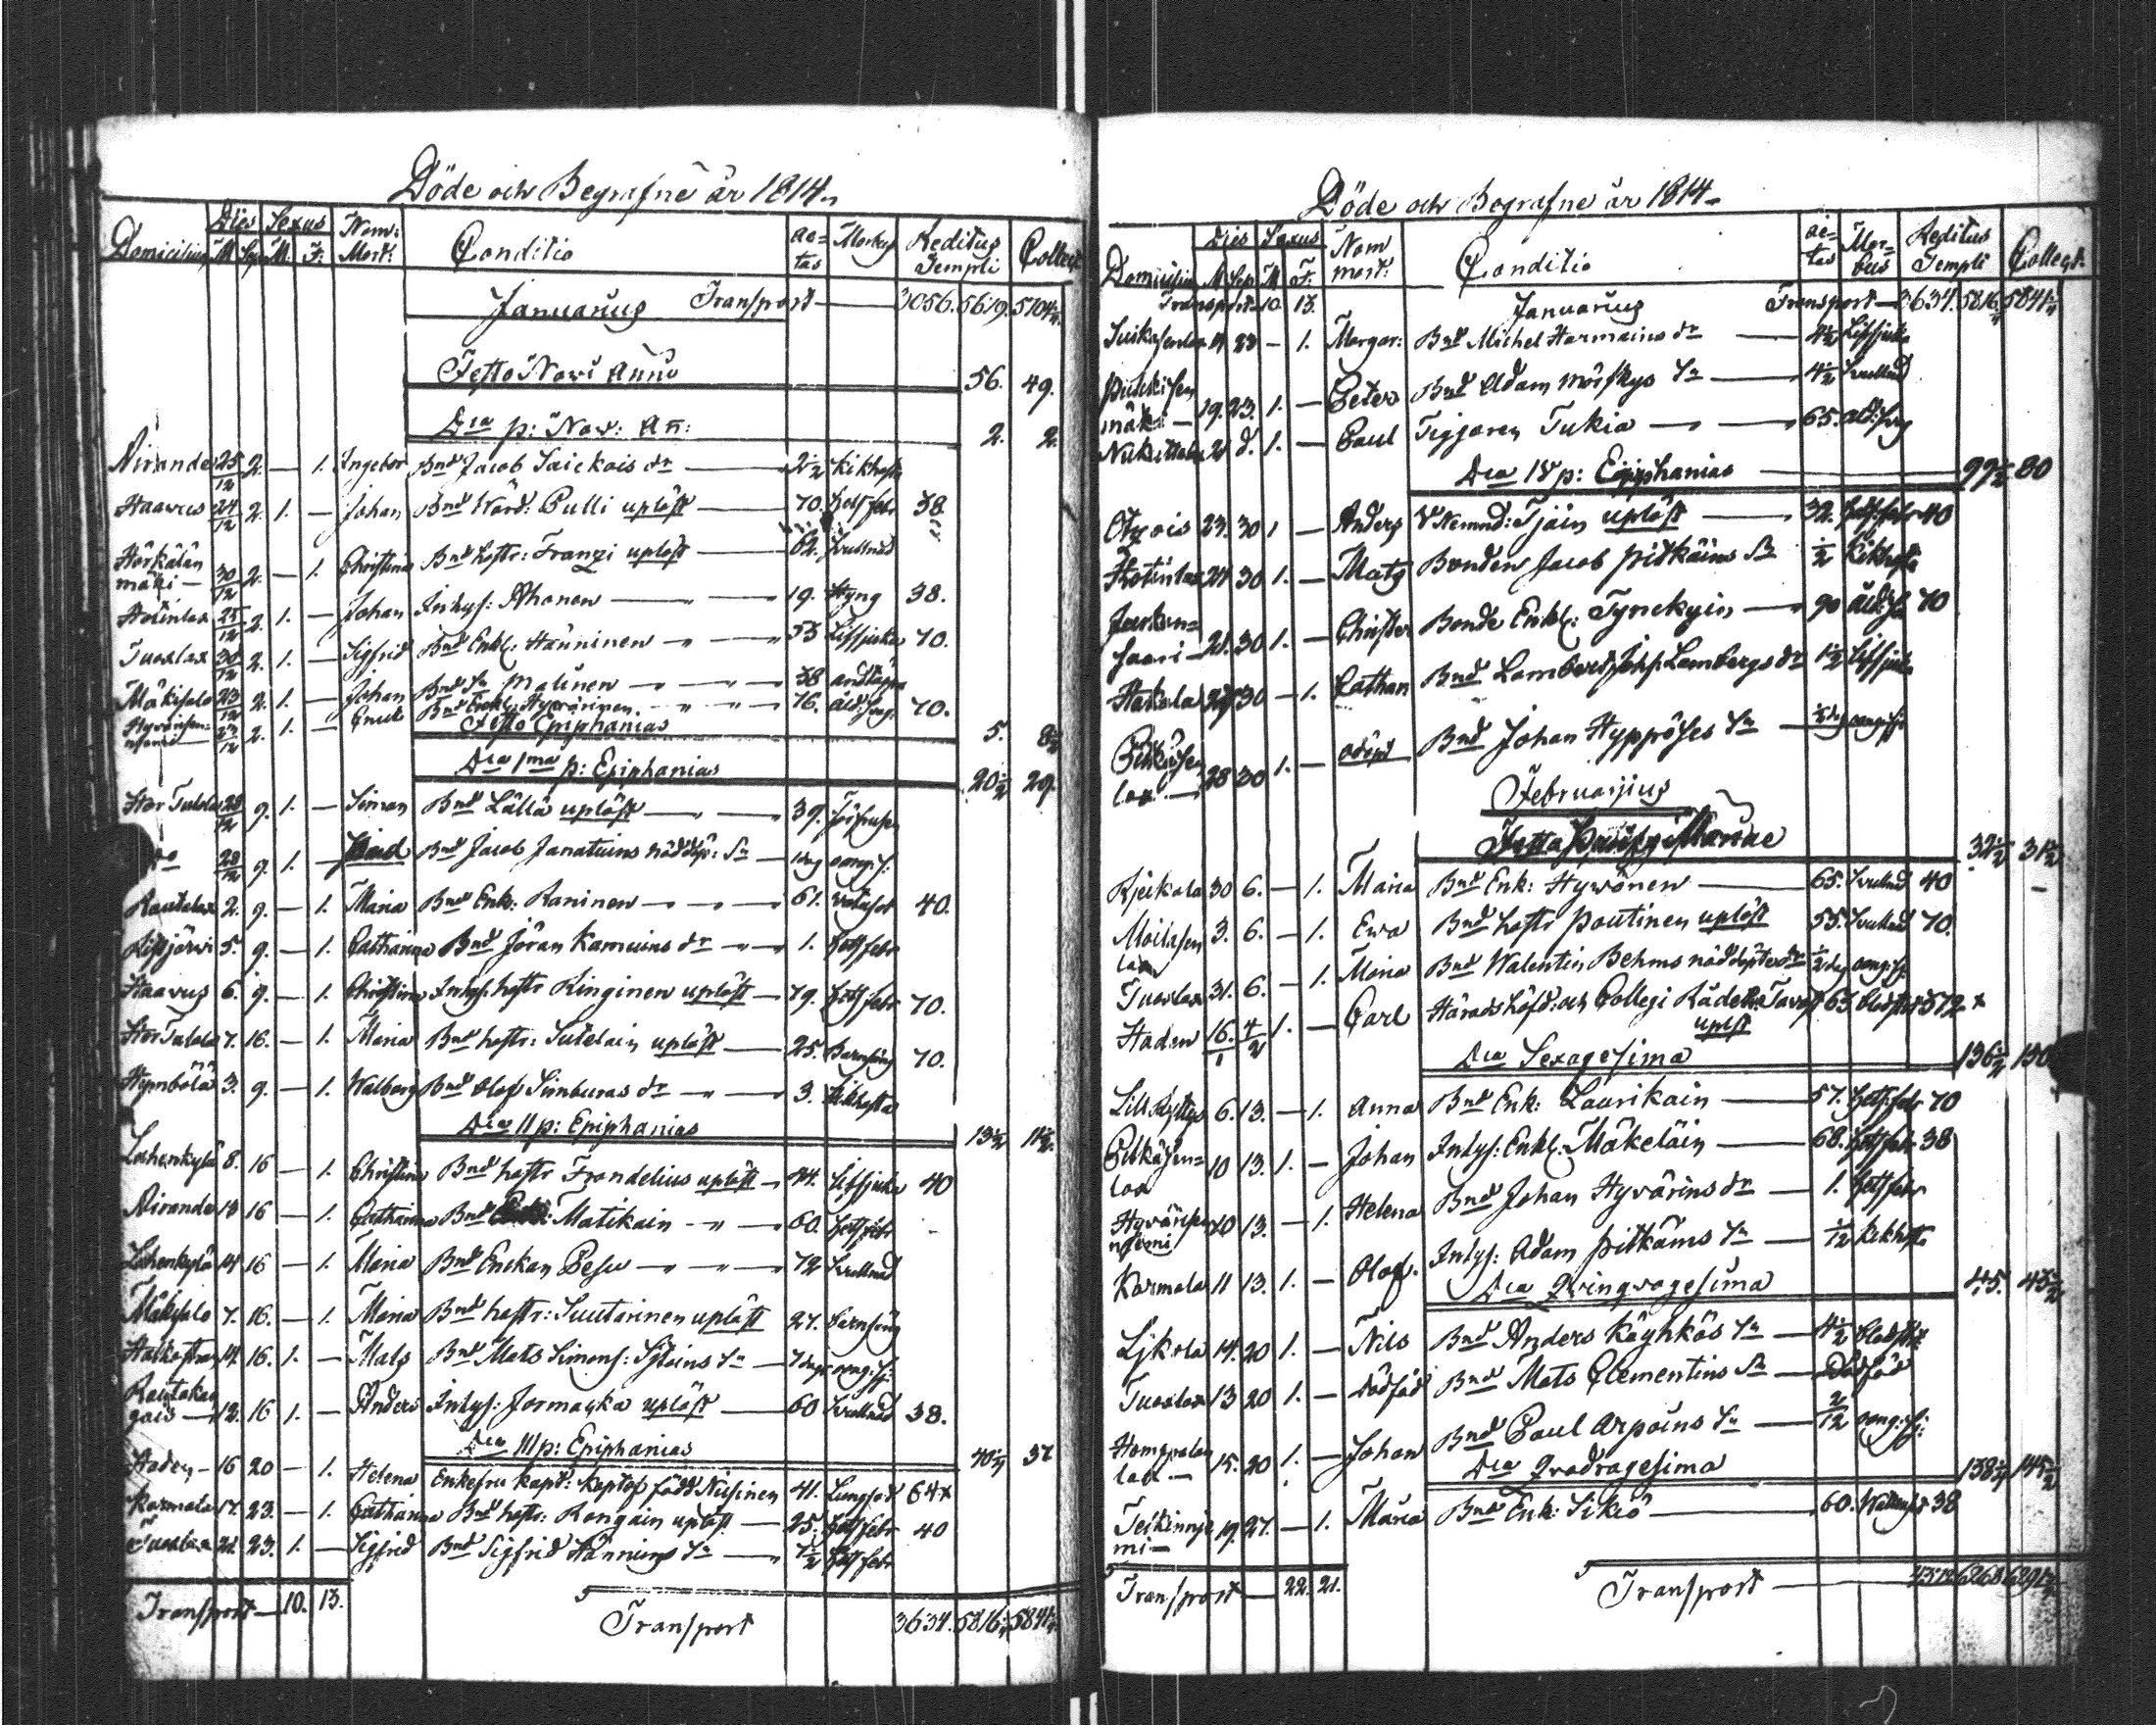 Döde och Begrafne år 1814.
Domicilium Dies Sexus Nom: Mort: Conditio ae= tas Morbus Reditus Templi Collect
M. Sep. M. F.
Januarius Transport — 3056. 5619. 5704
Festo Novi Anni 56. 49.
Dca p: Nov: An: 2. 2.
Nirande 25/12 2. — 1. Ingebor Bnd Jacob Saickois dr — 2 1/2 Kikhosta
Haavus 24/12 2. 1. — Johan Bnd Wärd: Pulli uplöst — 70. hetsfebr 38.
Härkälän
mäki — 30/12 2. — 1. Christina Bnd hustr: Franzi uplöst — 62. Swullnad
Hotinlax 25/12 2. 1. — Johan Inhys: Ahonen — 19. Styng 38.
Tuoslax 30/12 2. 1. — Sigfrid Bnd Enkl: Hänninen — 53 Lifsjuka 70.
Mäkisalo 23/12 2. 1. — Johan Bnd Sn Malinen — 38 andtäppa
Hyvärisen
niemi 27/12 2. 1. — Knut Bnd Enkl: Hyvärinen — 76. åld:svag 70.
Festo Epiphanias 5. 8 1/2
Dca 1ma p: Epiphanias 20 1/2 29
Stor Tulola 28/12 9. 1. — Simon Bnd Lällä uplöst — 39.
Do 28/12 9. 1. — Bnd Jacob Janatuins nöddöpt: Sn — 1 dag oang:s:
Rautalax 2. 9. — 1. Maria Bnd Enk: Raninen — 61. watusot 40.
Kissjärwi 5. 9. — 1. Catharina Bnd Jöran Kamuins dr — 1. hetsfebr
Haavus 6. 9. — 1. Christina Inhys. hustr Kinginen uplöst — 79. hetsfebr 70.
Stor Tulola 7. 16. — 1. Maria Bnd hustr: Sutelain uplöst — 25. Barnsäng 70.
Hymbölä 3. 9. — 1. Walborg Bnd Olof Simburas dr — 3. Kikhosta
Dca II p: Epiphanias 13 1/2 11 1/2
Lahenkylä 8. 16 — 1. Christina Bnd hustr Frondelius uplöst — 44. Lifsjuka 40
Nirande 13 16 — 1. Catharina Bnd Matikain — 60. hetsfebr
Lahenkylä 14 16 — 1. Maria Bnd Enckan Pesu — 72 Swullnad
Mäkisalo 7. 16. — 1. Maria Bnd hustr: Suutarinen uplöst 27. barnsäng
14. 16. 1. — Mats Bnd Mats Simons: Sn — 7 dagr oang:sj:
12. 16 1. — Anders Inhys: Jormayka uplöst — 60 Swullnad 38.
Dca III p: Epiphanias 40 37
Staden — 16 20 — 1. Helena Enkefru Kapt: född Nisinen 41. Lungsot
Karmala 17. 23. — 1. Catharina Bnd hustr: Rongain uplöst — 25. hetsfebr 40
Tuoslax 21. 23. 1. — Sigfrid Bnd Sigfrid Hännins Sn — hetsfebr
Transport — 10. 13. Transport 3634. 5816. 5841.
Döde och Begrafne år 1814.
Domicilium Dies Sexus Nom mort: Conditio ae= tas Mor= bus Reditus Templi Collect.
M Sep M F.
Transport 10. 13. Januarius Transport — 3634. 5816 5841
19 23 — 1. Margar: Bnd Michel Harmains dr — 4 1/2 Lifsjuka
mäki — 19. 23. 1. — Peter Bnd Adam Mörskys Sn — 4 1/2 Swullnad
21 d. 1. — Paul Tiggaren Tukia — 65. åld:svag
Dca IV p: Epiphanias 99 1/2 80
23. 30 1 — Anders Nemnd: Tjäin uplöst — 32. hetsfebr 40
Hotinlax 24 30 1. — Mats Bonden Jacob Pitkäins Sn 1/2 Kikhosta
saari — 21. 30 1. — Christer Bonde Enkl: Tynckyin — 90 åld: 70
Hakola 30 — 1. Cathar Bnd Lambert Lambergs dr 1 1/2 Lifsjuka
Pitkäsen
lax — 28 30 1. — odöpt Bnd Johan Hyppöses Sn 1/2 dag oang:sj
Februarius
Festo Mariae 32 1/2 31 1/2
30 6. — 1. Maria Bnd Enk: Hywönen — 65. Swullnad 40
Moilasen
lax 3. 6. — 1. Ewa Bnd hustr Poutinen uplöst 55. Swullnad 70.
Tuoslax 31. 6. — 1. Maria Bnd Walentin Behms nöddöpte dr 1/2 dag oang:sj.
Staden 16/1 4/2 1. — Carl Häradshöfd: och Collegi Rådet 63
uplst
Dca Sexagesima 136 1/2 130
Lill 6. 13. — 1. Anna Bnd Enk: Laurikain — 57. hetsfebr 70
Pitkäsen=
lax 10 13. 1. — Johan Inhys: Enkl: Mäkeläin — 68. hetsfebr 38
Hyvärisen
niemi 10 13. — 1. Helena Bnd Johan Hyvärins dr — 1. hetsfebr
Karmala 11 13. 1. — Olof. Inhys: Adam Pitkäins Sn — 1/2 Kikhosta
Dca Qvinqvagesima 45. 43 1/2
14. 20 1. — Nils Bnd Anders Käyhkös Sn — 4 1/2
Tuoslax 13 20 1. — Dödföd Bnd Mats Clementins Sn — Dödföd
lax — 15. 20 1. — Johan Bnd Paul Arpoins Sn — 2/12 oang:sj:
Dca Qvadragesima 138 145 1/2
mi — 19. 27. — 1. Maria Bnd Enk: Sikiö — 60. Wattusot 38
Transport — 22. 21. Transport —